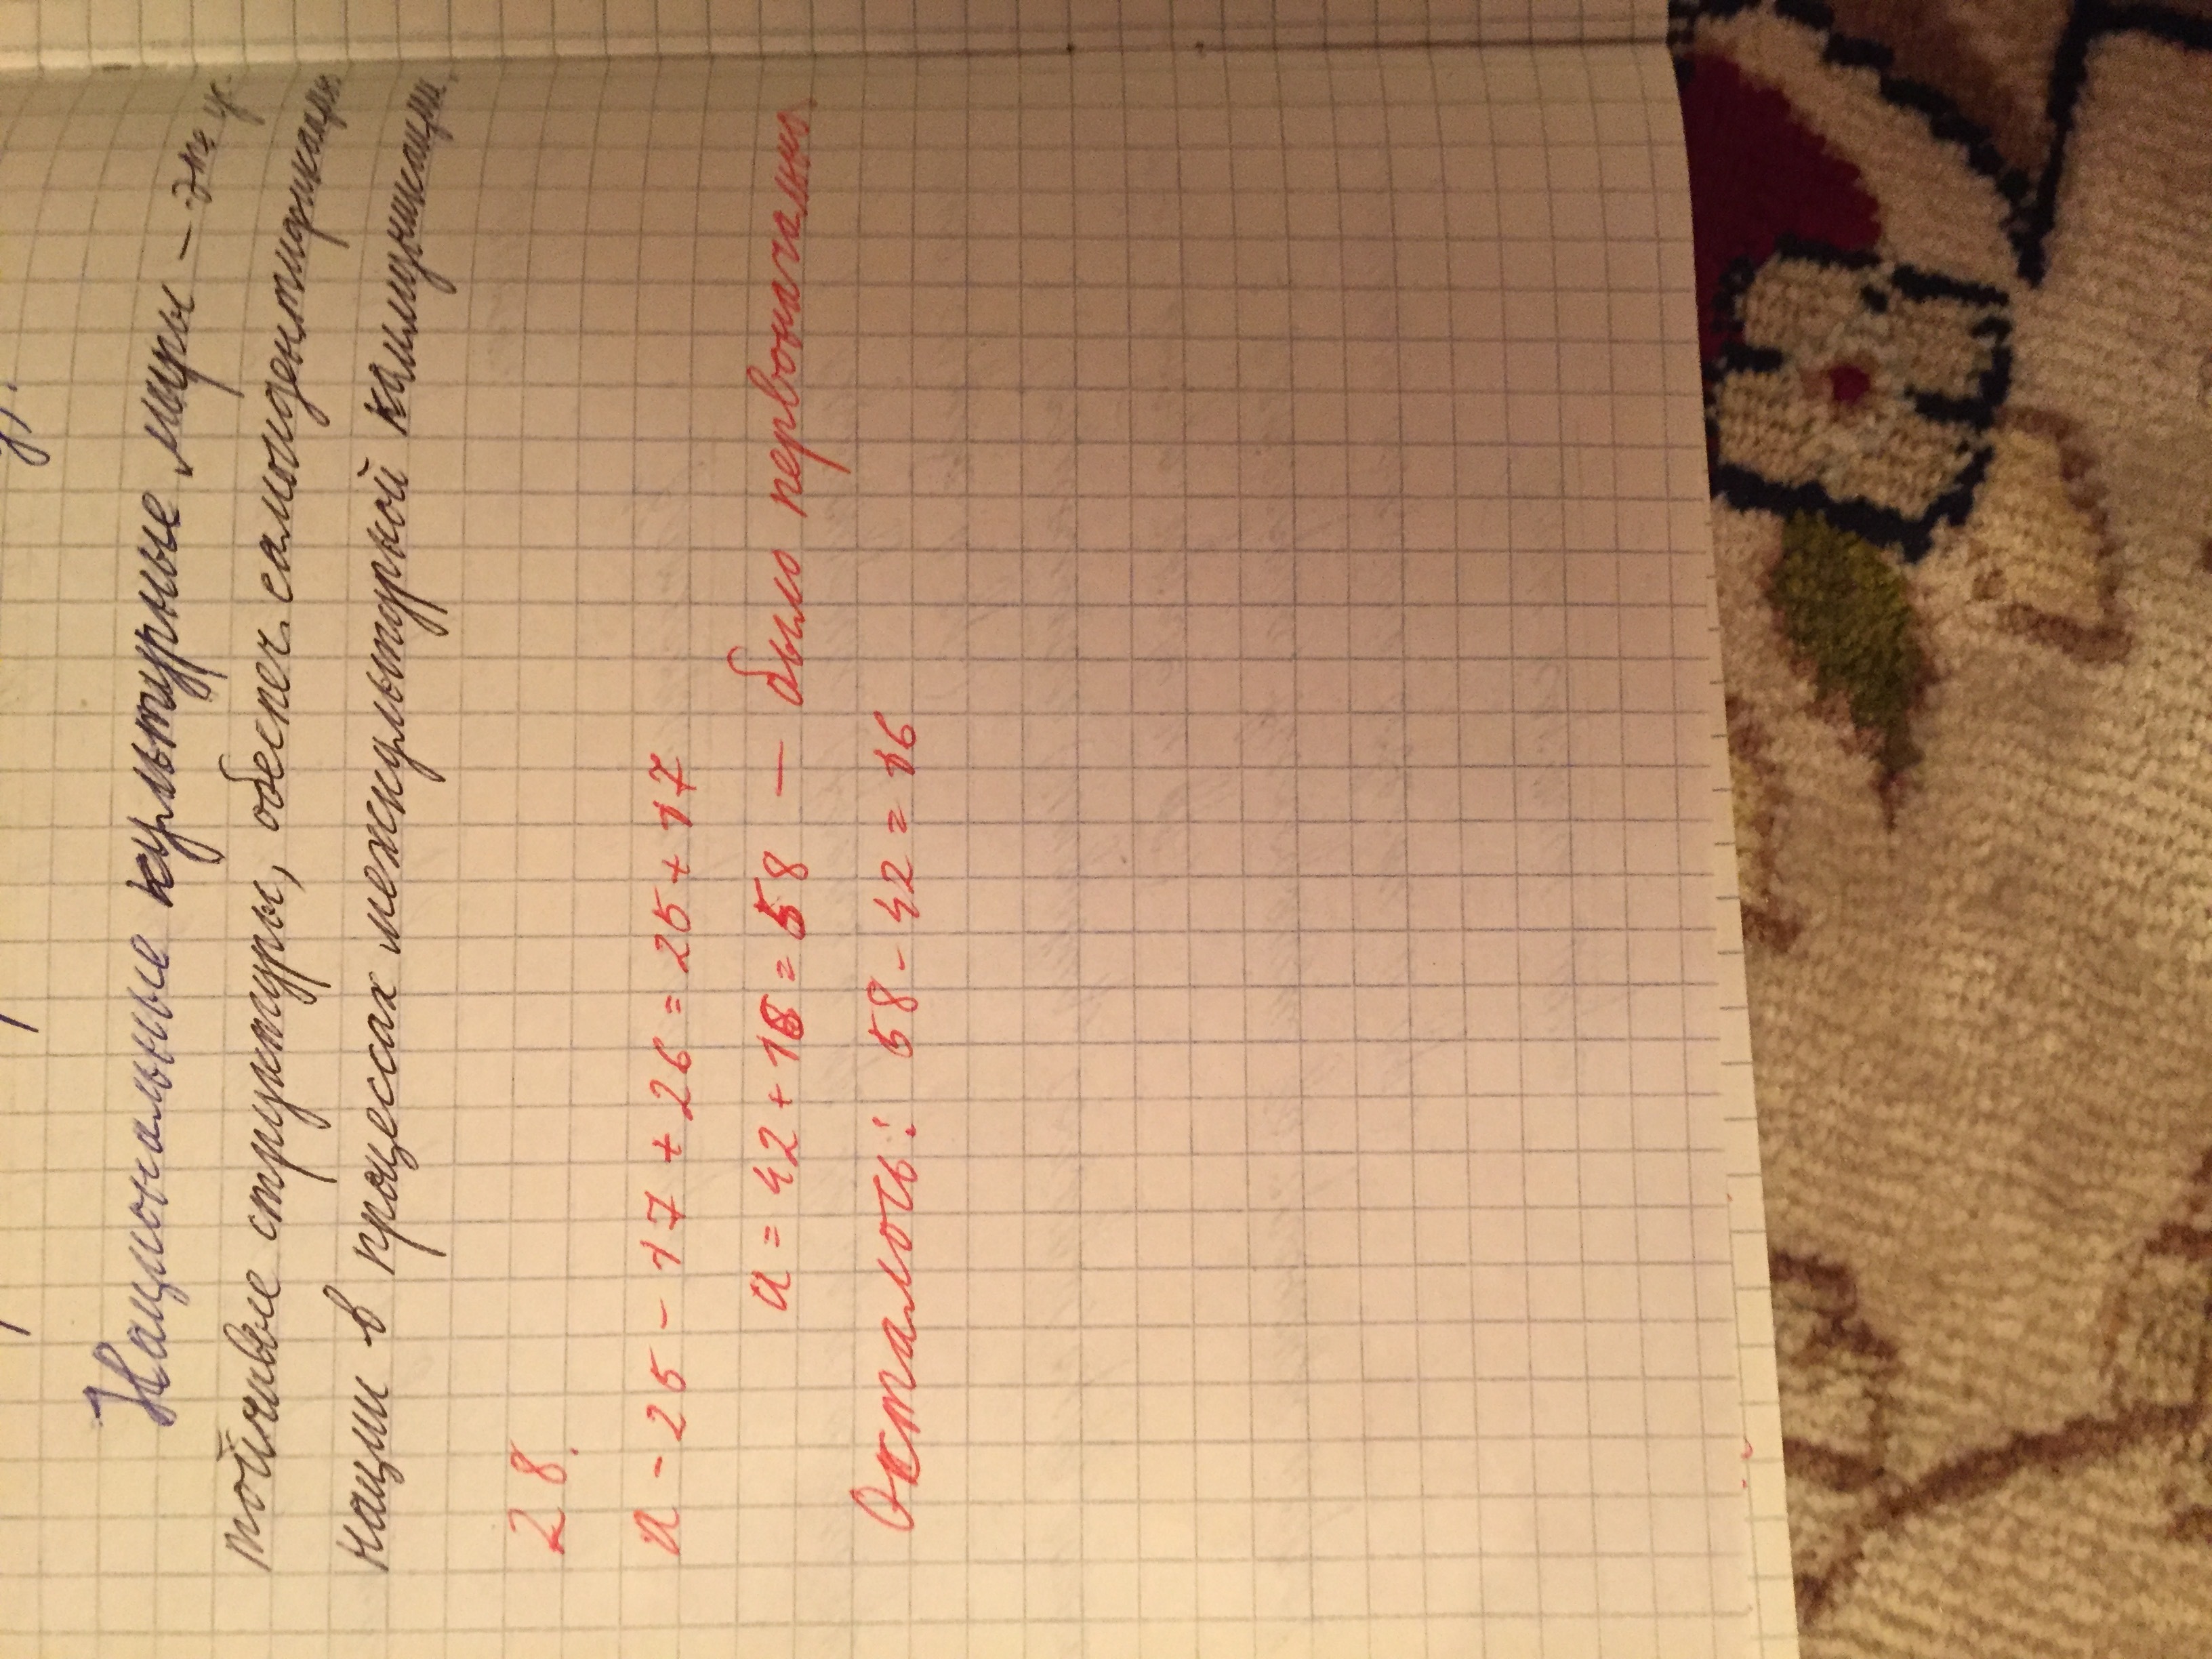 Национальные культурные миры – это ус-
тойчивые структуры, обеспеч. самоидентификацию
нации в процессах межкультурной коммуникации.
28.
n - 25 - 17 + 26 = 25 + 17
n = 42 + 16 = 58 — было первоначально
Осталось: 58 - 42 = 16